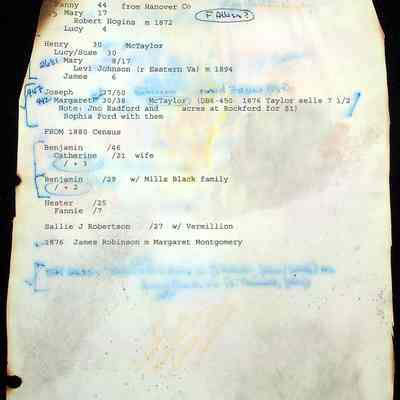 anny 44 from Hanover Co
Mary 17
F Allen?
Robert Hogins m 1872
Lucy 4
Henry 30 McTaylor
Lucy/Suse 30
Mary 8/17
Levi Johnson (r Eastern Va) m 1894
James 6
Joseph 27/50
Margaret 30/38 McTaylor (DB6-450 1876 Taylor sells 7 1/2
Note: Jno Radford and acres at Rockford for $1)
Sophia Ford with them
FROM 1880 Census
Benjamin /46
Catherine /21 wife
/ + 3
Benjamin /29 w/ Mills Black family
/ + 2
Hester /25
Fannie /7
Sallie J Robertson /27 w/ Vermillion
1876 James Robinson m Margaret Montgomery